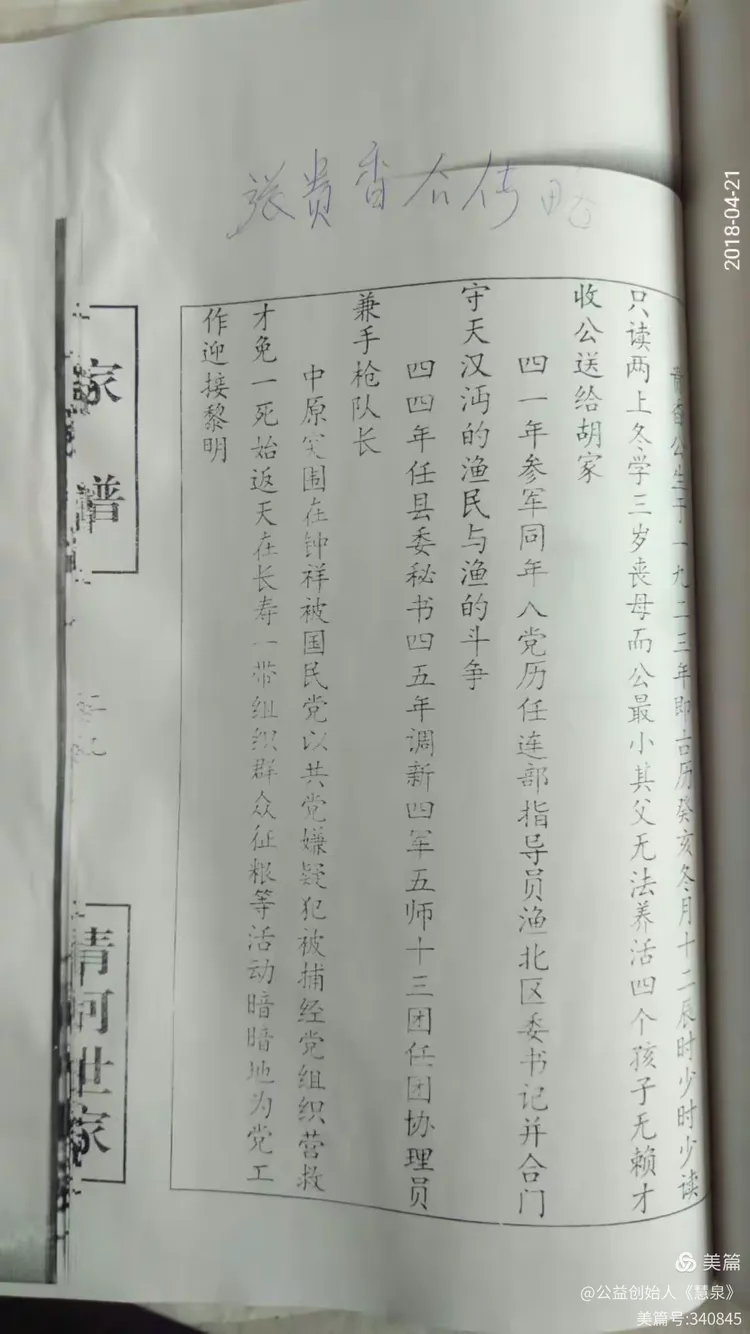 张贵香公传略
贵香公生于一九二三年即古历癸亥冬月十二辰时少时少读
只读两上冬学三岁丧母而公最小其父无法养活四个孩子无赖才
收公送给胡家
四一年参军同年入党历任连部指导员渔北区委书记并合门
守天汉沔的渔民与渔的斗争
四四年任县委秘书四五年调新四军五师十三团任团协理员
兼手枪队长
中原突围在钟祥被国民党以共党嫌疑犯被捕经党组织营救
才免一死始返天在长寿一带组织群众征粮等活动暗暗地为党工
作迎接黎明
家谱
清河世家
2018-04-21
美篇
@公益创始人《慧泉》
美篇号:340845